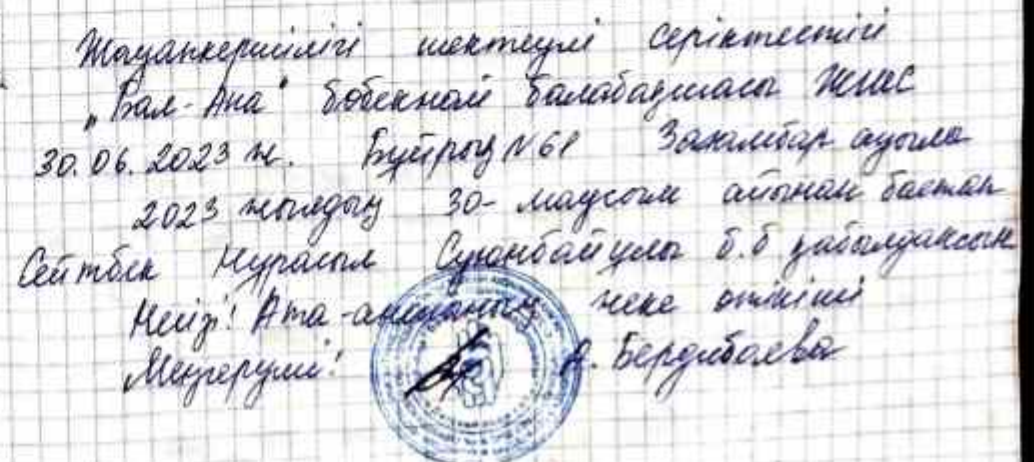 Жауапкершілігі шектеулі серіктестігі
"Бал-Ана" бөбекжай балабақшасы ЖШС
30.06.2023 ж. Бұйрық №61 Зажамбар ауылы
2023 жылдың 30- маусым айынан бастап
Сейтбек Нұрасыл Суюнбайұлы б.б қабылдансын
Негізі! Ата-ананың жеке өтініші
Меңгеруші! А. Бердибаева